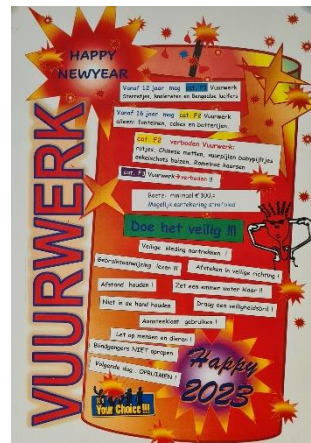 HAPPY
NEWYEAR
VUURWERK
Vanaf 12 jaar mag cat. F1 Vuurwerk
Sterretjes, knalerwten en Bengaalse lucifers
Vanaf 16 jaar mag cat. F2 Vuurwerk
alleen: fonteinen, cakes en batterijen.
cat. F2 verboden Vuurwerk:
rotjes, Chinese matten, vuurpijlen babypijltjes
enkelschots buizen, Romeinse kaarsen
cat. F3 Vuurwerk → verboden !!
Boete: minimaal € 100,-
Mogelijk aantekening strafblad
Doe het veilig !!!
Veilige kleding aantrekken !
Gebruiksaanwijzing lezen !!!
Afsteken in veilige richting !
Afstand houden !
Zet een emmer water klaar !!
Niet in de hand houden
Draag een veiligheidsbril !
Aansteeklont gebruiken !
Let op mensen en dieren !
Blindgangers NIET oprapen
Volgende dag : OPRUIMEN !
Happy
2023
It's
Your Choice !!!